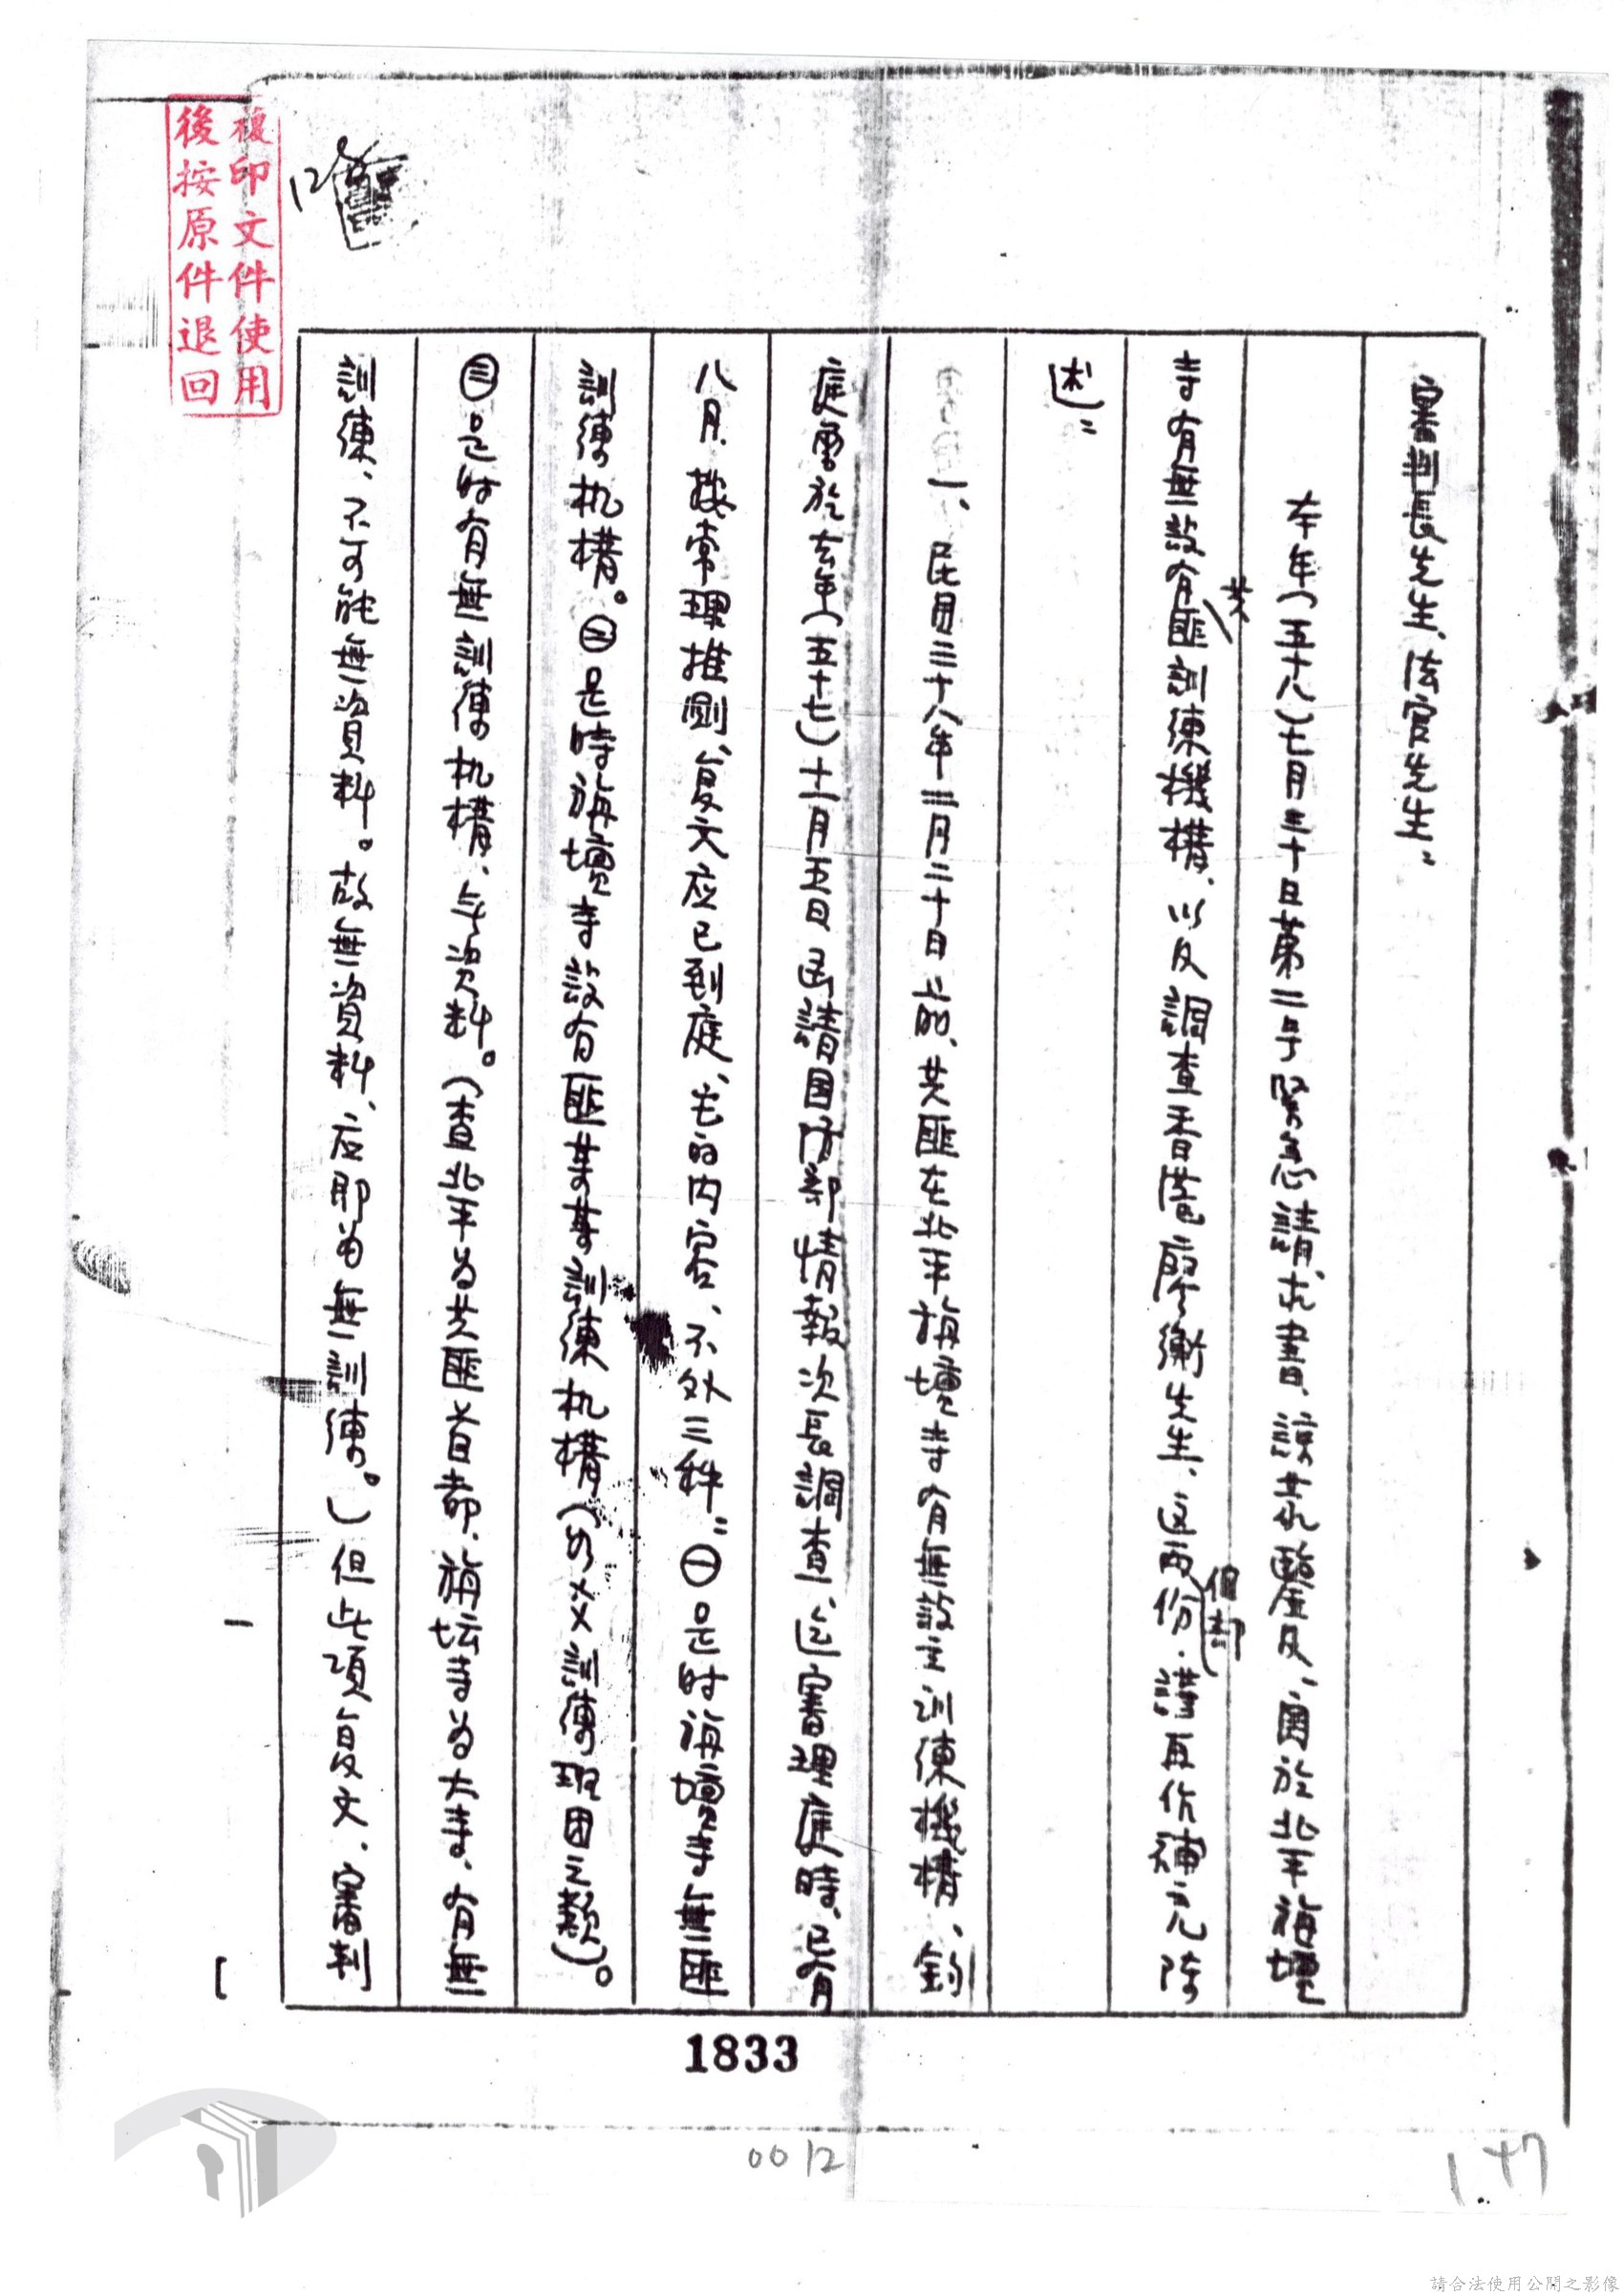 審判長先生、法官先生：
本年（五十八）七月三十日第二号緊急請求書、諒蒙鑒及、関於北平旃壇
寺有無設有共匪訓練機構、以及調查香港廖衡先生、這两份伯都、謹再作補充陳
述：
一、民国三十八年二月二十日以前、共匪在北平旃壇寺有無設立訓練機構、鈞
庭曾於去年（五十七）十二月五日函請国防部情報次長調查、迄審理庭時、已有
八月、按常理推測、复文应已到庭、它的内容、不外三种：㊀是时旃壇寺無匪
訓練机構。㊁是時旃壇寺設有匪某某訓練机構（如ㄨㄨ訓練班团之類）。
㊂是时有無訓練机構、无资料。（查北平为共匪首都、旃坛寺为大寺、有無
訓練、不可能無資料。故無資料、应即为無訓練。）但此項复文、審判
複印文件使用
後按原件退回
1833
0012
147
請合法使用公開之影像